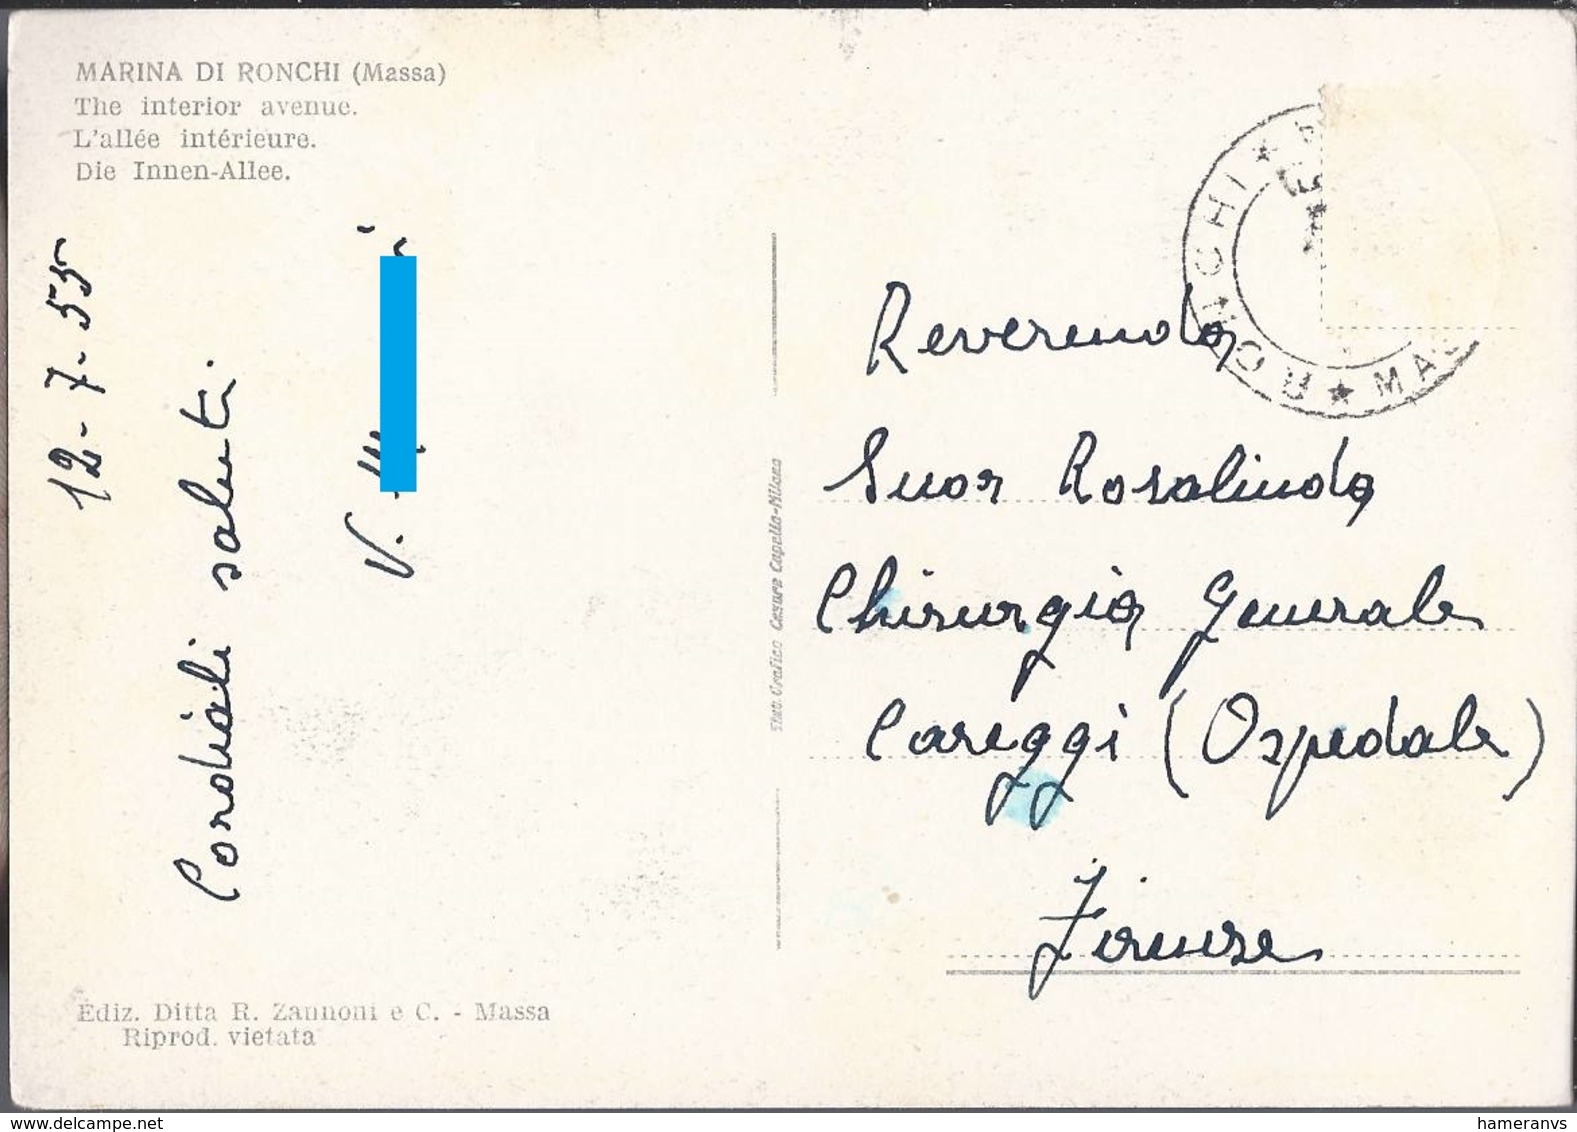 MARINA DI RONCHI (Massa)
The interior avenue.
L'allée intérieure.
Die Innen-Allee.
12-7-55
Cordiali saluti.
V.
Stab. Grafico Cesare Capello-Milano
RONCHI ★
★ MAS
Reverenda
Suor Rosalinda
Chirurgia Generale
Careggi (Ospedale)
Firenze
Ediz. Ditta R. Zannoni e C. - Massa
Riprod. vietata
delcampe.net
hameranvs